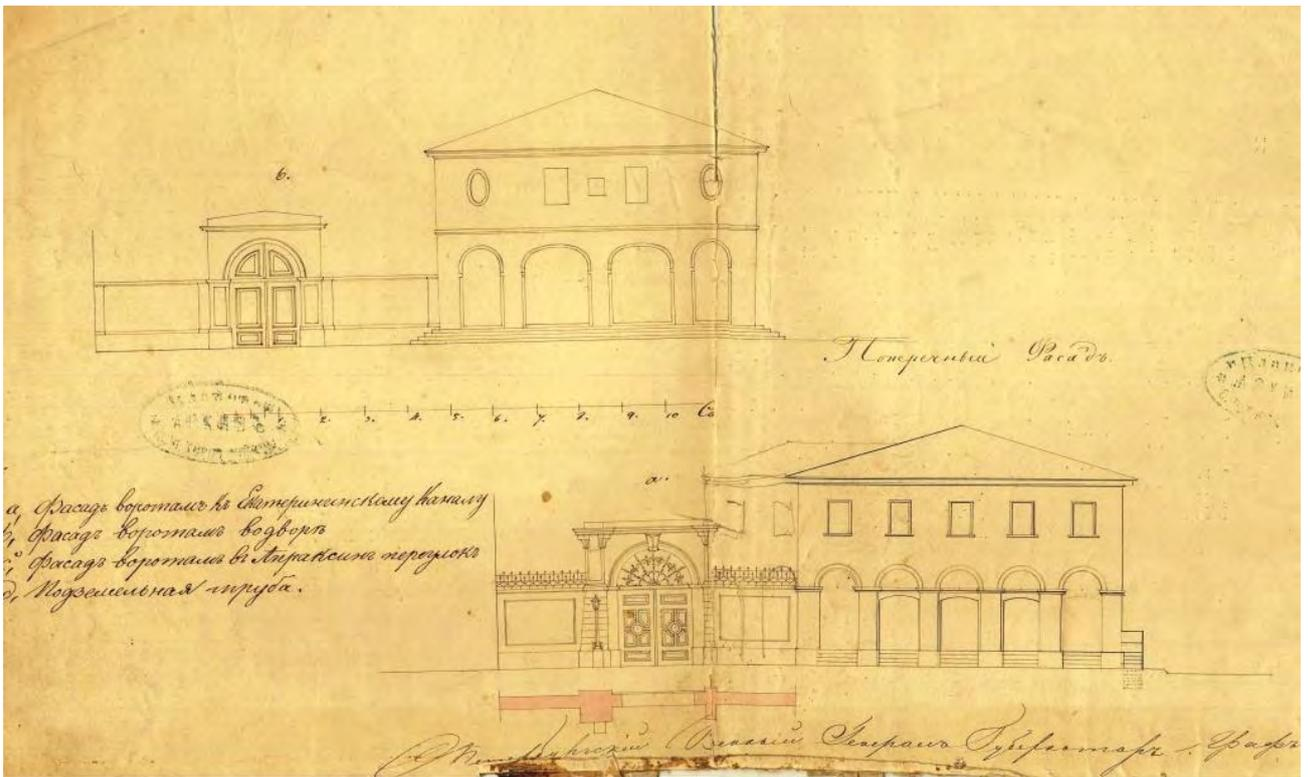 b.
Поперечный Фасадъ.
2. 3. 4. 5. 6. 7. 8. 9. 10 Са
a.
a, Фасадъ воротамъ къ Екатерининскому Каналу
b, Фасадъ воротамъ водворъ
c, Фасадъ воротамъ въ Апраксинъ переулокъ
d, Подземельная труба.
Военный Генералъ Губернаторъ. Графъ